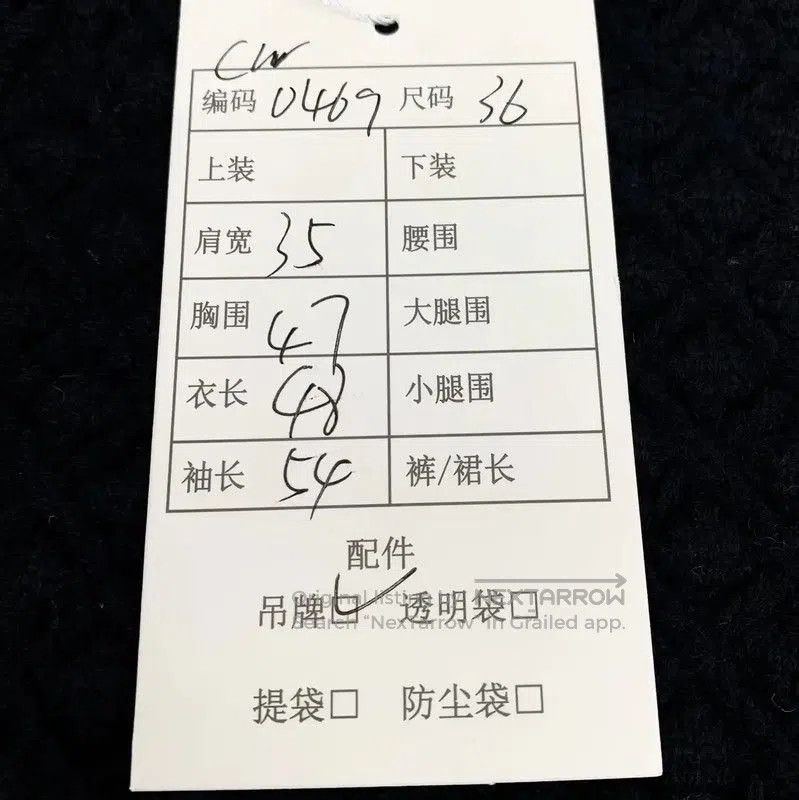 CW
编码 0469 尺码 36
上装 下装
肩宽 35 腰围
胸围 47 大腿围
衣长 48 小腿围
袖长 54 裤/裙长
配件
吊牌 透明袋
Original listing by NEXTARROW
Search "NexTarrow" in Grailed app.
提袋 防尘袋